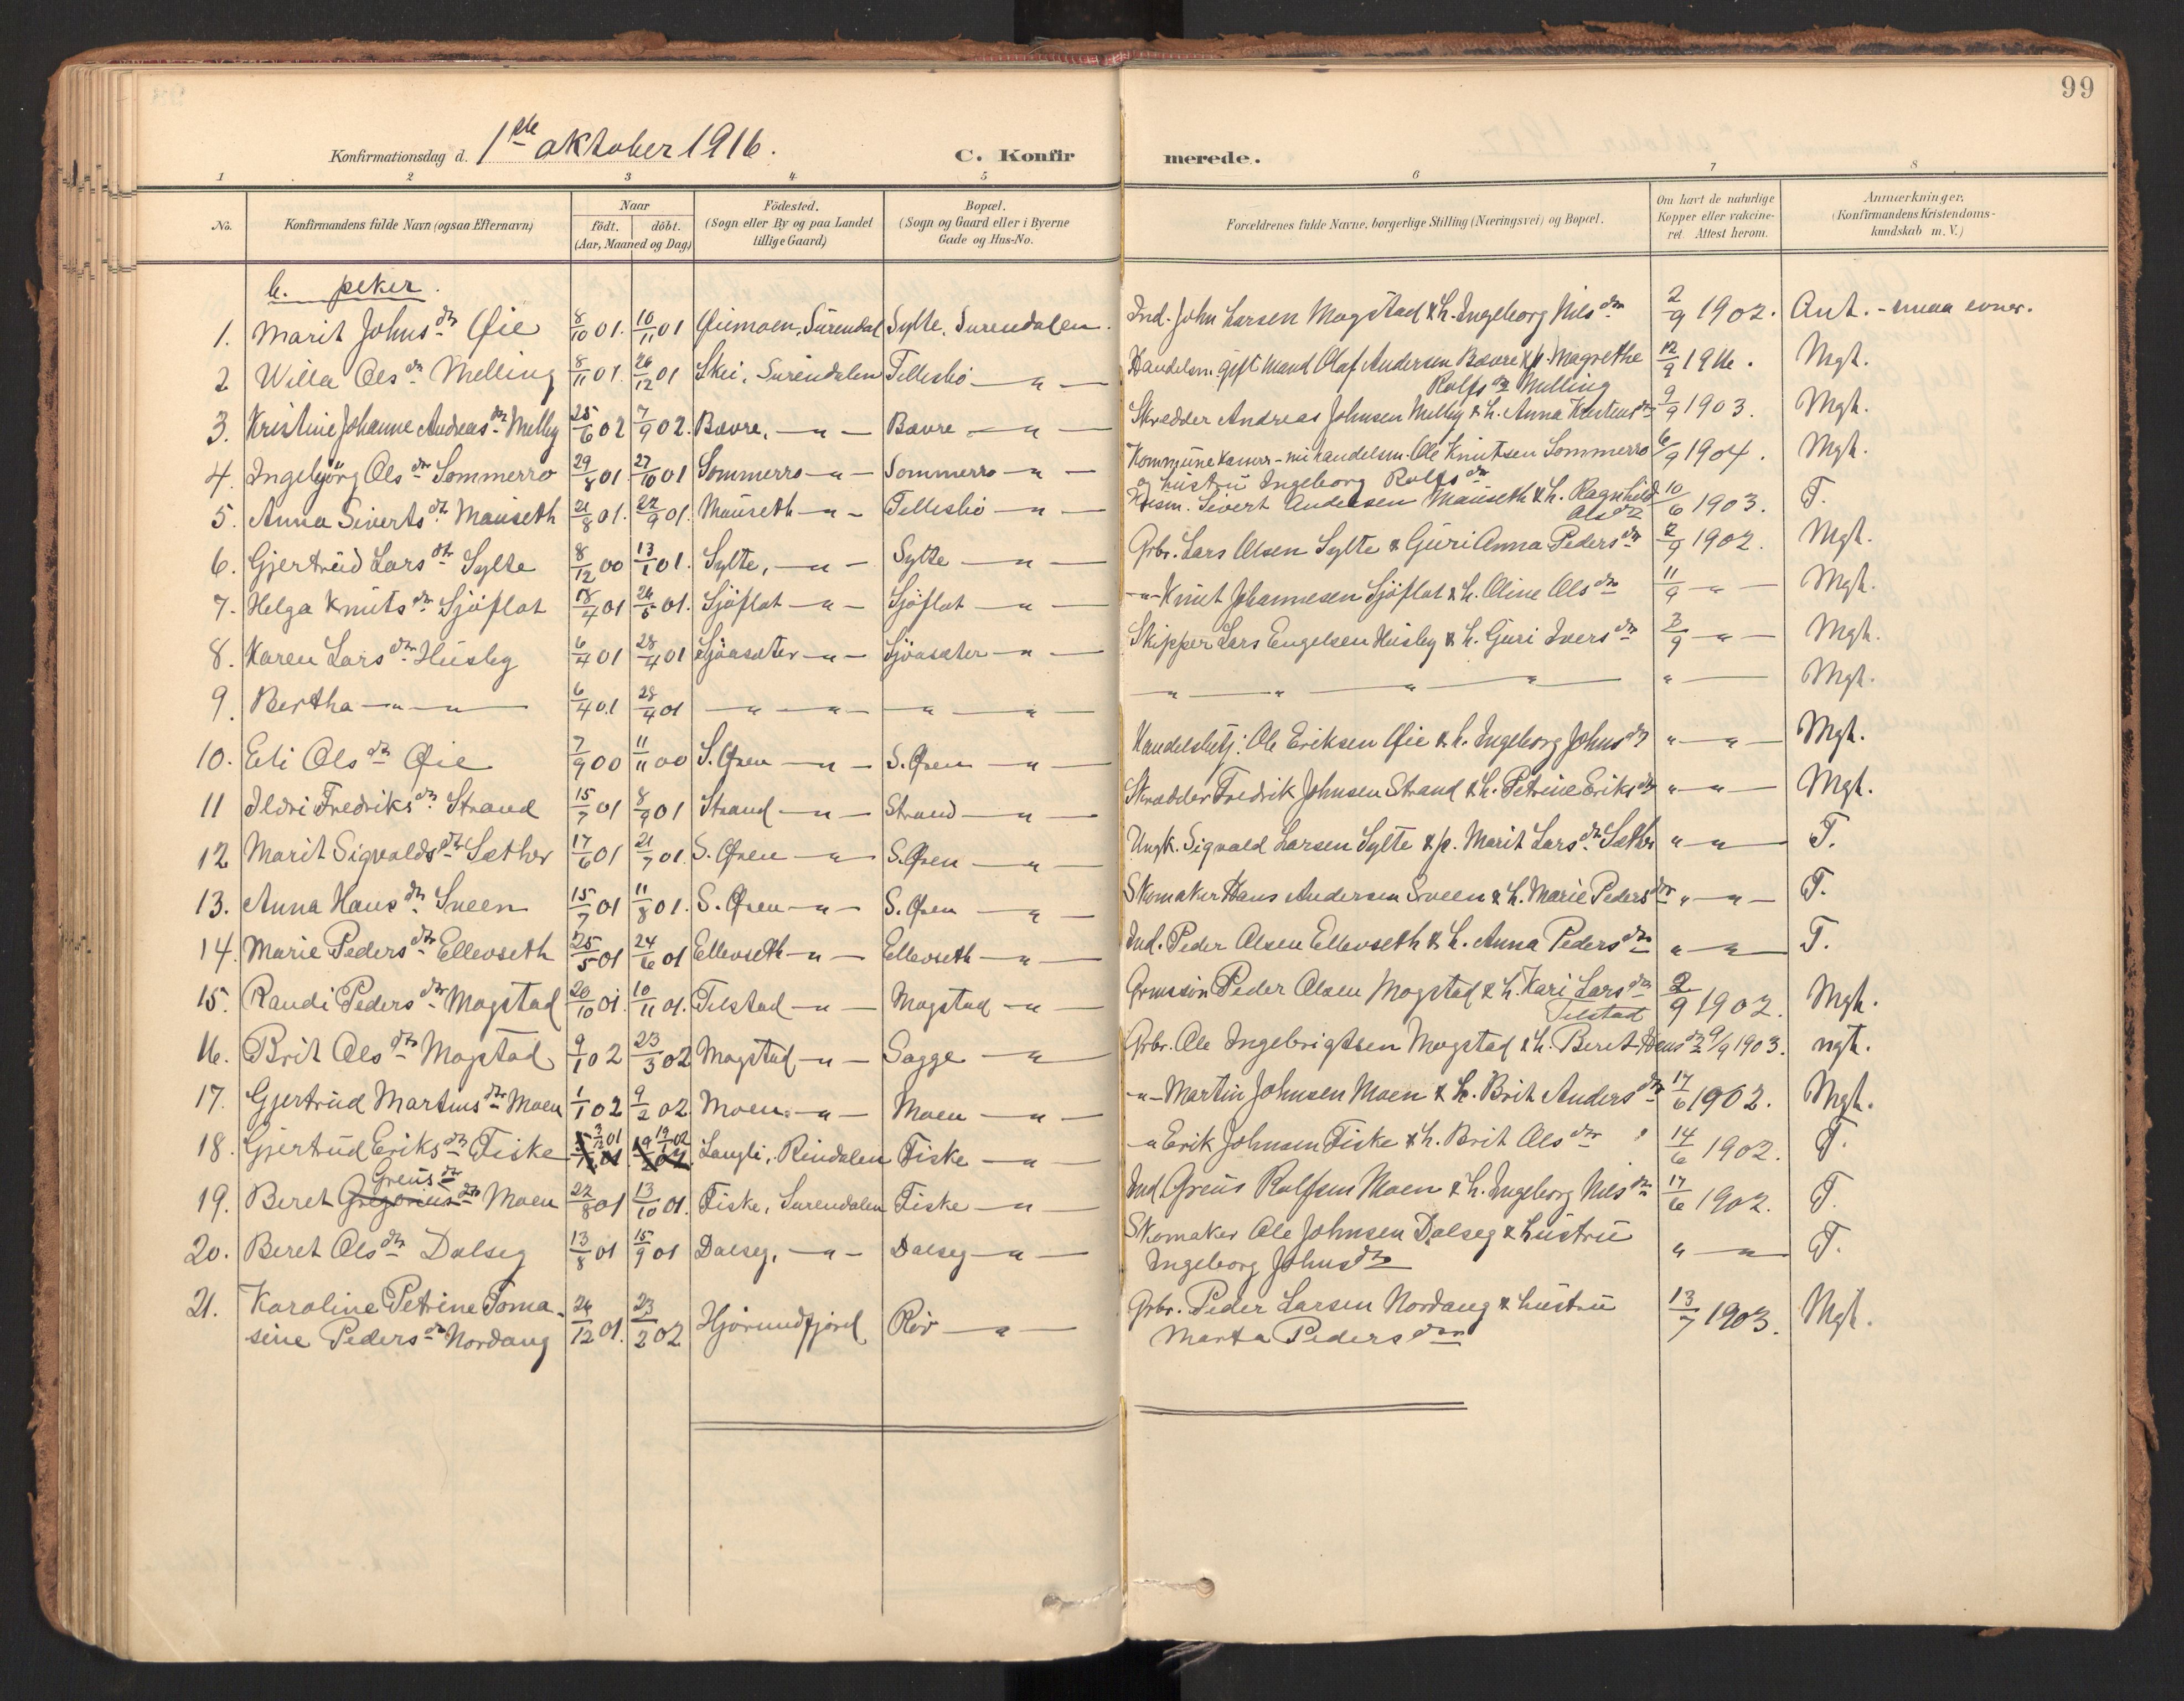 99
Konfirmationsdag d. 1ste oktober 1916. C. Konfirmerede.
1 2 3 4 5 6 7 8
No. Konfirmandens fulde Navn (ogsaa Efternavn) Naar födt. döbt. (Aar, Maaned og Dag) Födested. (Sogn eller By og paa Landet tillige Gaard) Bopæl. (Sogn og Gaard eller i Byerne Gade og Hus-No. Forældrenes fulde Navne, borgerlige Stilling (Næringsvei) og Bopæl. Om havt de naturlige Kopper eller vakcineret. Attest herom. Anmærkninger. (Konfirmandens Kristendomskundskab m. V.)
b. peker.
1. Marit Johnsdtr Øie 8/10 01. 10/11 01 Øiemoen, Surendal Sylte, Surendalen. Ind. John Larsen Mogstad & h. Ingeborg Nilsdtr 2/9 1902. Ant. - smaa evner.
2 Willa Olsdtr Melling 8/11 01. 26/12 01 Skei, Surendalen Tellesbö -"- Handelsm. gift mand Olaf Andersen Bævre & p. Magrethe Rolfsdtr Melling 12/9 1916. Mgt.
3. Kristine Johanne Andreasdtr Melby 25/6 02 7/9 02. Bævre, -"- Bævre -"- Skrædder Andreas Johnsen Melby & h. Anna Kristensdtr 9/9 1903. Mgt.
4. Ingebjörg Olsdtr Sommerro 29/8 01. 27/10 01 Sommerro -"- Sommerro -"- Kommunekasser- mi handelsm. Ole Knutsen Sommerro og hustru Ingeborg Rolfsdtr 6/9 1904. Mgt.
5. Anna Sivertsdtr Mauseth 21/8 01. 22/9 01. Mauseth -"- Tellesbö -"- Husm. Sivert Andersen Mauseth & h. Ragnhild Olsdtr 10/6 1903. T.
6. Gjertrud Larsdtr Sylte 8/12 00 13/1 01. Sylte, -"- Sylte -"- Grbr. Lars Olsen Sylte & Guri Anna Pedersdtr 2/9 1902. Mgt.
7. Helga Knutsdtr Sjöflot 18/4 01 26/5 01. Sjöflot -"- Sjöflot -"- -"- Knut Johannesen Sjöflot & h. Oline Olsdtr 11/9 -"- Mgt.
8. Karen Larsdtr Husby 6/4 01 28/4 01 Sjöasæter -"- Sjöasæter -"- Skipper Lars Engelsen Husby & h. Guri Iversdtr 3/9 -"- Mgt.
9. Bertha -"-"- 6/4 01 28/4 01 -"-"- -"-"- -"-"-"-"- "- Mgt.
10. Eli Olsdtr Øie 7/9 00 11/11 00 S. Øren -"- S. Øren -"- Handelsbetj. Ole Eriksen Øie & h. Ingeborg Johnsdtr "-"- Mgt.
11 Ildri Fredriksdtr Strand 15/7 01 8/9 01 Strand -"- Strand -"- Skrædder Fredrik Johnsen Strand & h. Petrine Eriksdtr "-"- Mgt.
12 Marit Sigvaldsdtr Sæther 17/6 01 21/7 01. S. Øren -"- S. Øren -"- Ungk. Sigvald Larsen Sylte & p. Marit Larsdtr Sæther "-"- T.
13. Anna Hansdtr Sveen 15/7 01 11/8 01. S. Øren -"- S. Øren -"- Skomaker Hans Andersen Sveen & h. Marie Pedersdtr "-"- T.
14. Marie Pedersdtr Ellevseth 25/5 01 24/6 01 Ellevseth -"- Ellevseth -"- Ind. Peder Olsen Ellevseth & h. Anna Pedersdtr "-"- T.
15. Randi Pedersdtr Mogstad 20/10 01. 10/11 01. Telstad -"- Mogstad -"- Grmssön Peder Olsen Mogstad & h. Kari Larsdtr Telstad 2/9 1902. Mgt.
16. Brit Olsdtr Mogstad 9/1 02 23/3 02 Mogstad -"- Sagge -"- Grbr. Ole Ingebrigtsen Mogstad & h. Beret 9/9 1903. ngt.
17. Gjertrud Martinsdtr Moen 1/1 02 9/2 02 Moen -"- Moen -"- -"- Martin Johnsen Moen & h. Brit Andersdtr 17/6 1902. Mgt.
18. Gjertrud Eriksdtr Fiske 3/12 01 19/1 02 Langli, Rindalen Fiske -"- -"- Erik Johnsen Fiske & h. Brit Olsdtr 14/6 1902. T.
19. Beret Gregoriusdtr Greusdtr Moen 22/8 01 13/10 01. Fiske, Surendalen Fiske -"- Ind. Greus Rolfsen Moen & h. Ingeborg Nilsdtr 17/6 1902. T.
20. Beret Olsdtr Dalseg 13/8 01 15/9 01 Dalseg, -"- Dalseg -"- Skomaker Ole Johnsen Dalseg & hustru Ingeborg Johnsdtr "-"- T.
21. Karoline Petrine Tomasine Pedersdtr Nordang 26/12 01. 23/2 02 Hjörundfjord Röv -"- Grbr. Peder Larsen Nordang & hustru Marta Pedersdtr 13/7 1903. Mgt.